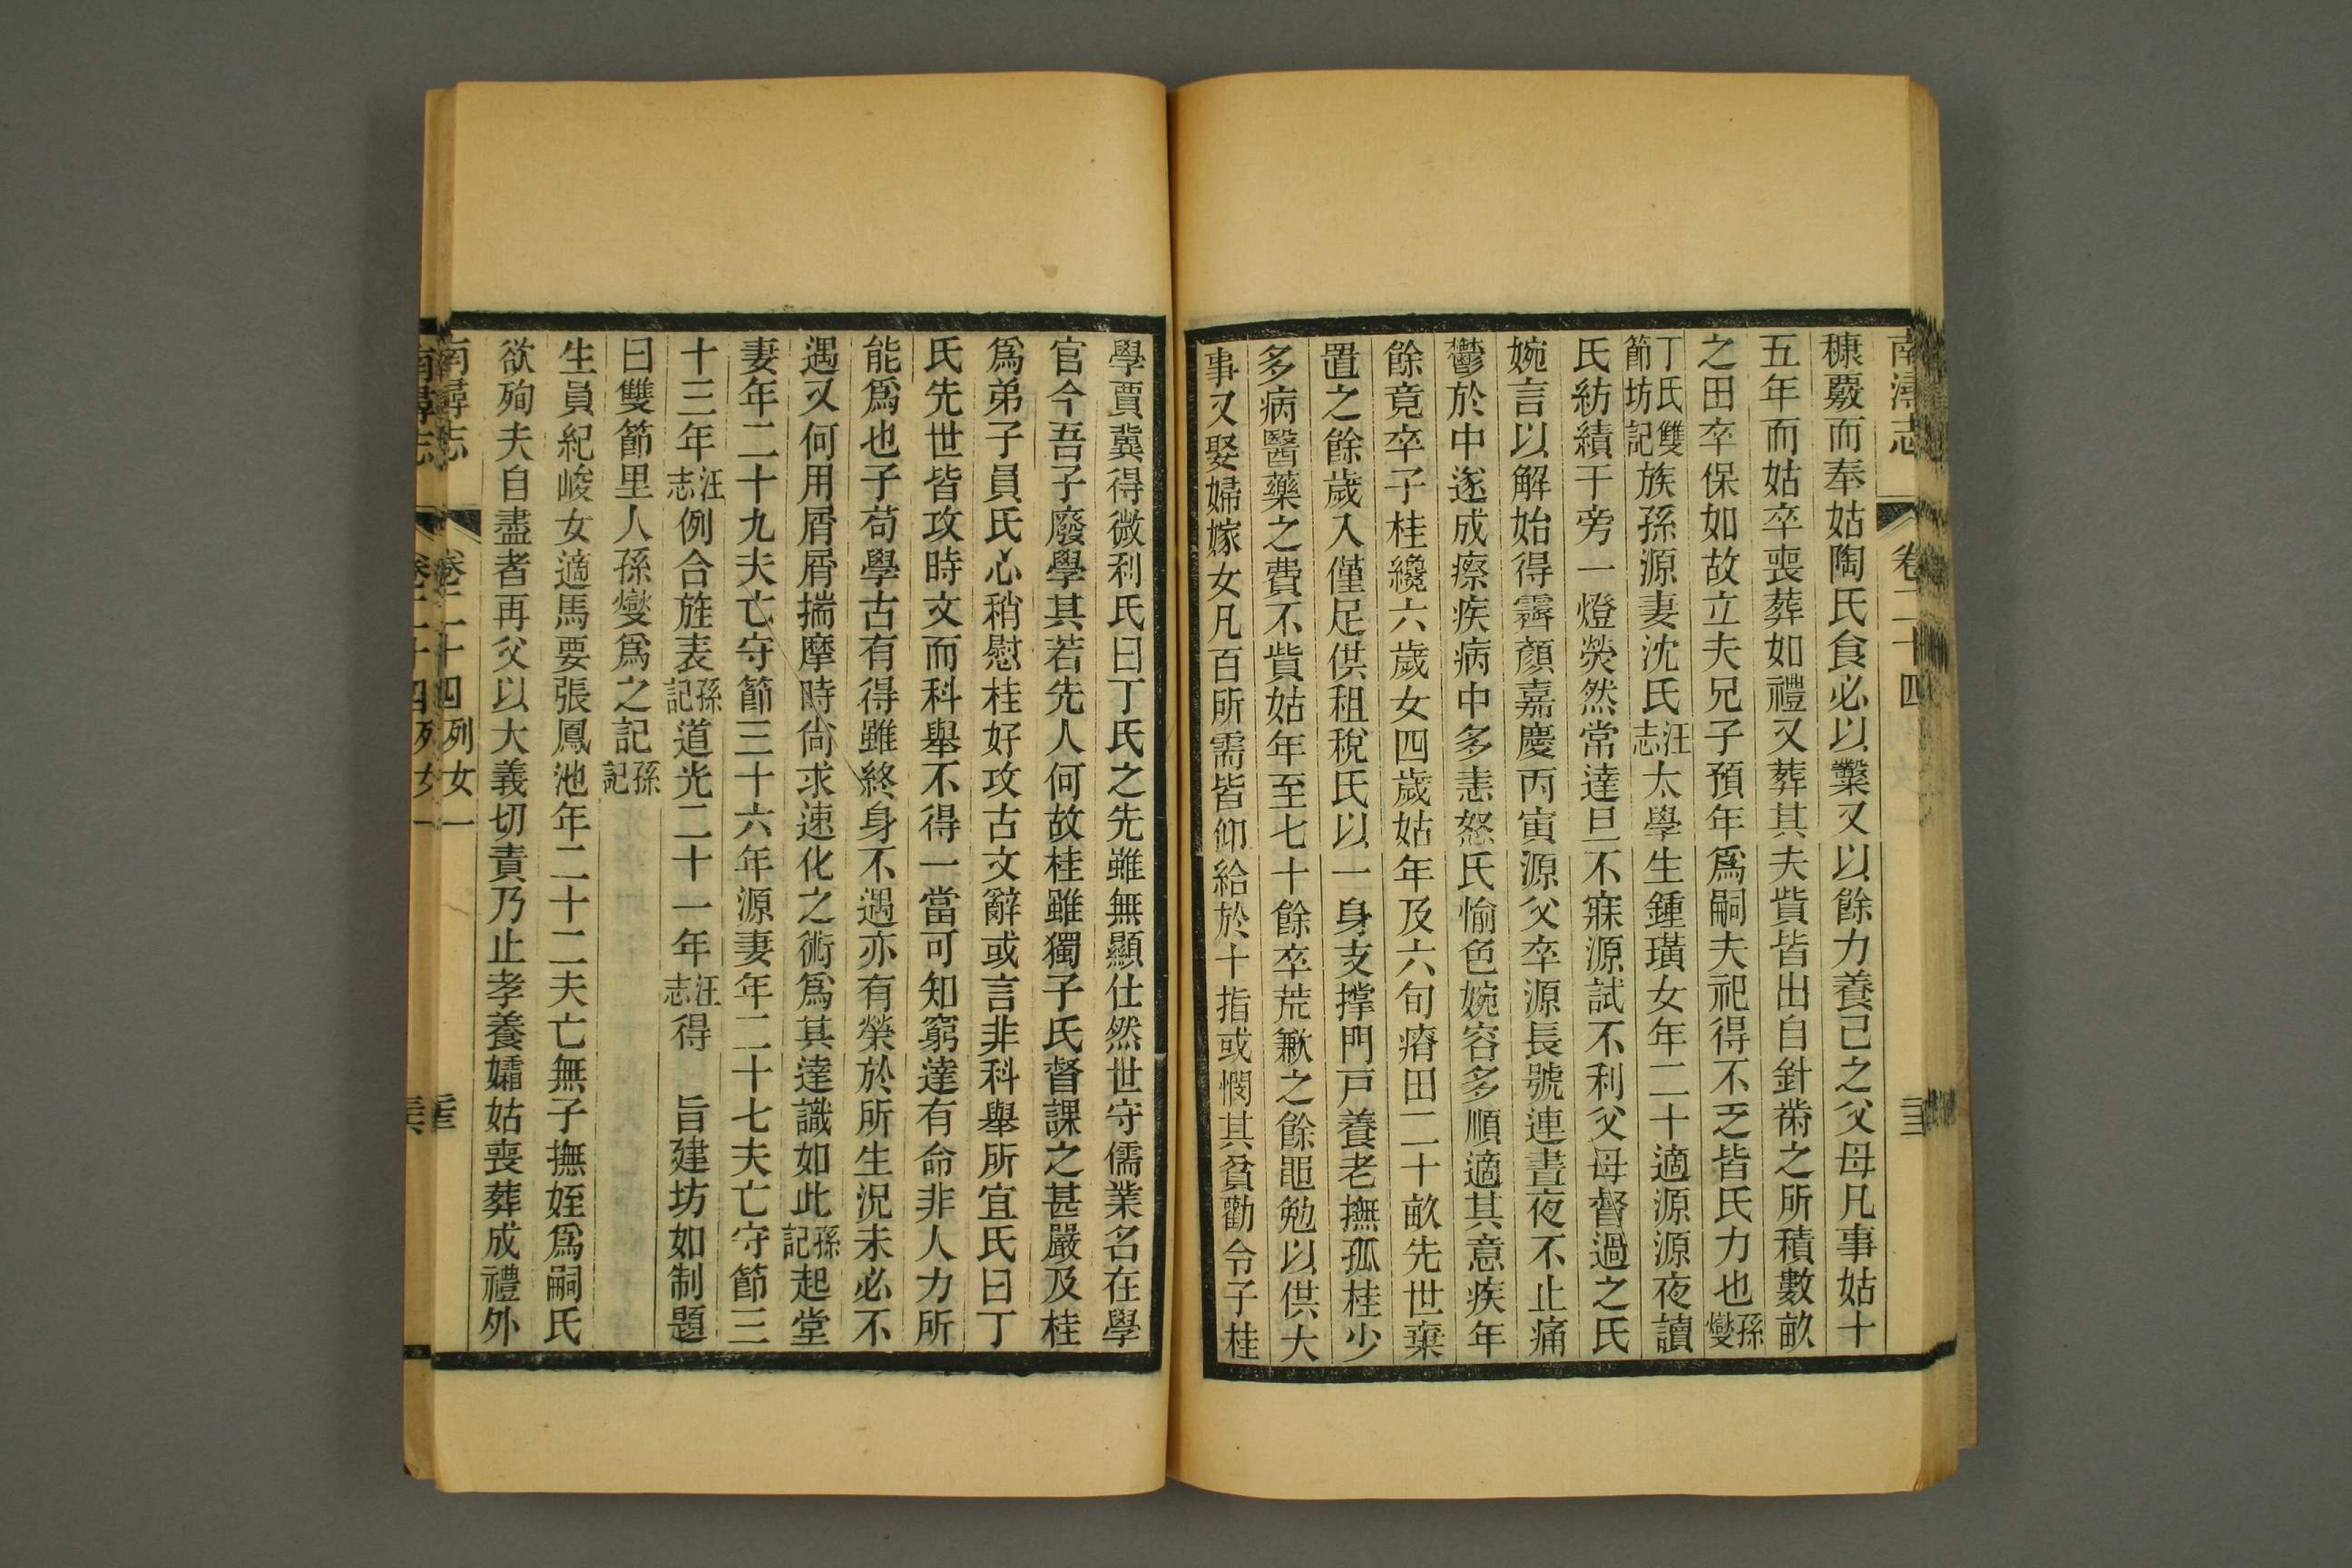 南潯志 卷二十四
糠覈而奉姑陶氏食必以鑿又以餘力養己之父母凡事姑十
五年而姑卒喪葬如禮又葬其夫貲皆出自針黹之所積數畝
之田卒保如故立夫兄子預年爲嗣夫祀得不乏皆氏力也孫燮
丁氏雙節坊記族孫源妻沈氏汪志太學生鍾璜女年二十適源源夜讀
氏紡績于旁一燈熒然常達旦不寐源試不利父母督過之氏
婉言以解始得霽顏嘉慶丙寅源父卒源長號連晝夜不止痛
鬱於中遂成瘵疾病中多恚怒氏愉色婉容多順適其意疾年
餘竟卒子桂纔六歲女四歲姑年及六旬瘠田二十畝先世棄
置之餘歲入僅足供租稅氏以一身支撑門戸養老撫孤桂少
多病醫藥之費不貲姑年至七十餘卒荒歉之餘黽勉以供大
事又娶婦嫁女凡百所需皆仰給於十指或憫其貧勸令子桂
學賈冀得微利氏曰丁氏之先雖無顯仕然世守儒業名在學
官今吾子廢學其若先人何故桂雖獨子氏督課之甚嚴及桂
爲弟子員氏心稍慰桂好攻古文辭或言非科舉所宜氏曰丁
氏先世皆攻時文而科舉不得一當可知窮達有命非人力所
能爲也子苟學古有得雖終身不遇亦有榮於所生況未必不
遇又何用屑屑揣摩時尙求速化之術爲其達識如此孫記起堂
妻年二十九夫亡守節三十六年源妻年二十七夫亡守節三
十三年汪志例合旌表孫記道光二十一年汪志得 旨建坊如制題
曰雙節里人孫燮爲之記孫記
生員紀峻女適馬要張鳳池年二十二夫亡無子撫姪爲嗣氏
欲殉夫自盡者再父以大義切責乃止孝養孀姑喪葬成禮外
南潯志 卷二十四列女一
南潯志 卷二十四列女一